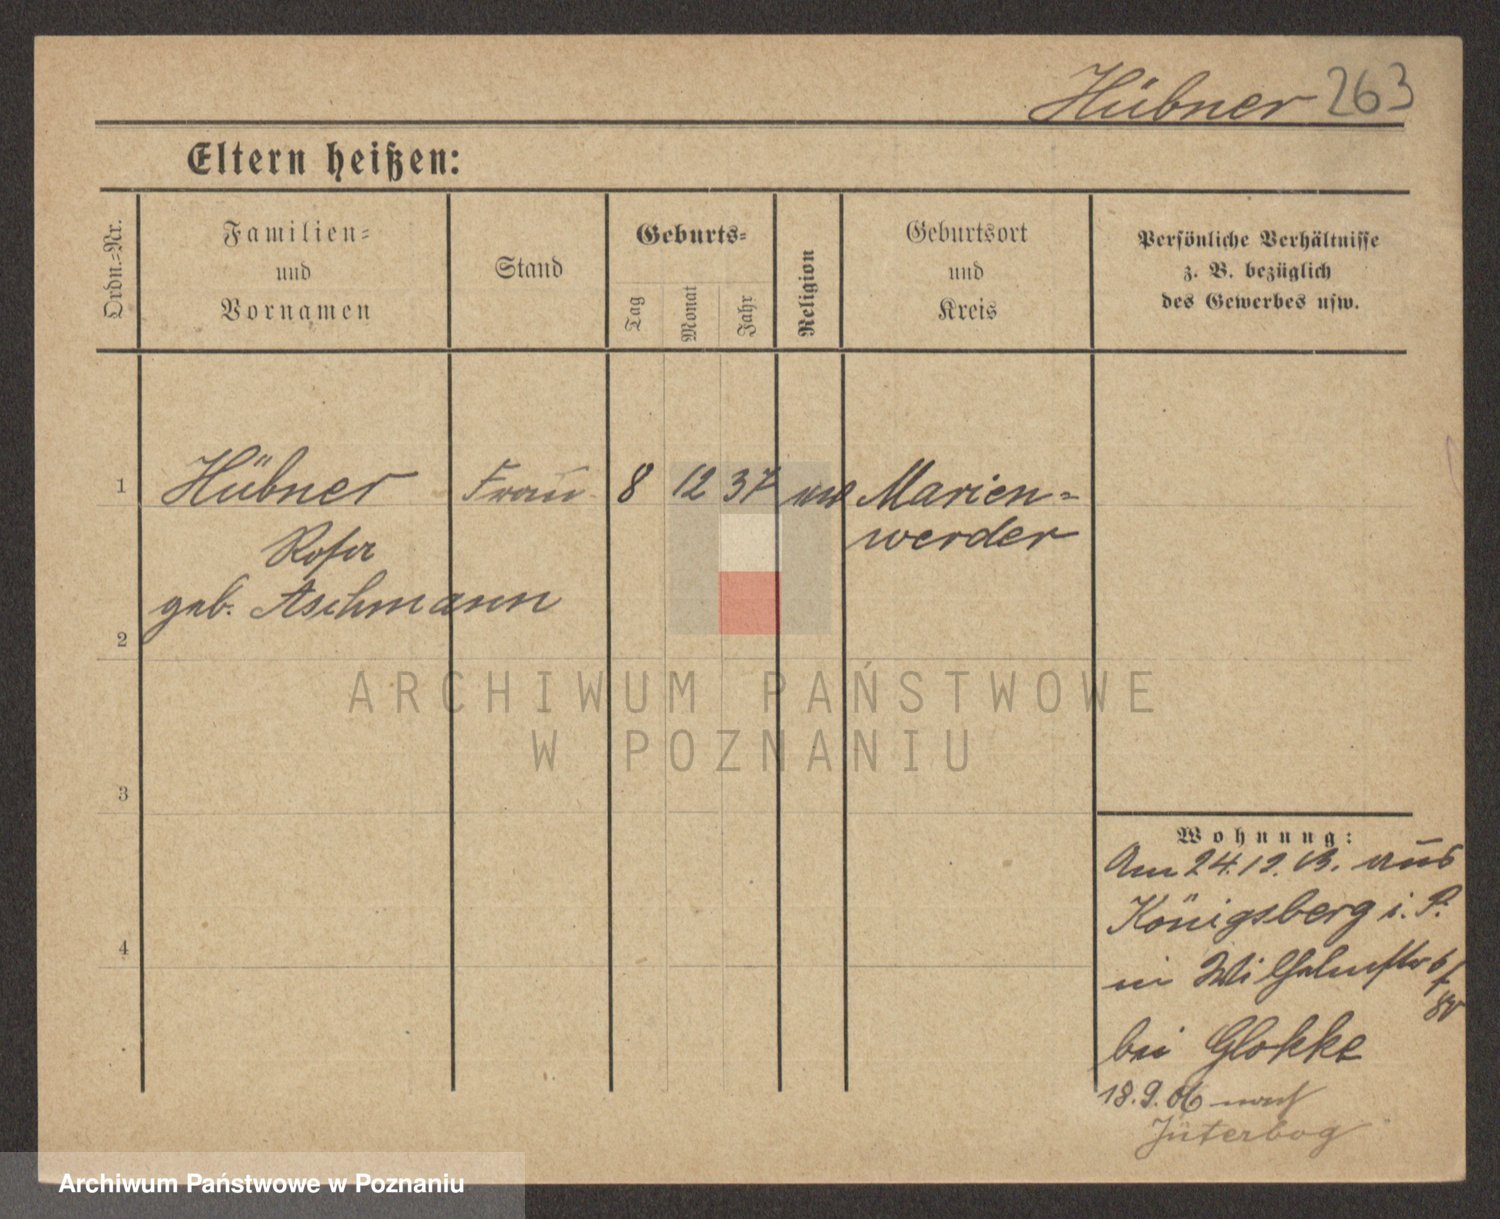 Hübner 263
Eltern heißen:
Ordn.-Nr.
Familien-
und
Vornamen
Stand
Geburts-
Tag
Monat
Jahr
Religion
Geburtsort
und
Kreis
Persönliche Verhältnisse
z. B. bezüglich
des Gewerbes usw.
1 Hübner Frau 8 12 37 Marien-
werder
Rosa
geb. Aschmann
2
3
4
Wohnung:
Am 24.12.03. aus
Königsberg i. P.
in Wilhelmstr
bei Glokke
18.9.06 nach
Jüterbog
ARCHIWUM PAŃSTWOWE
W POZNANIU
Archiwum Państwowe w Poznaniu